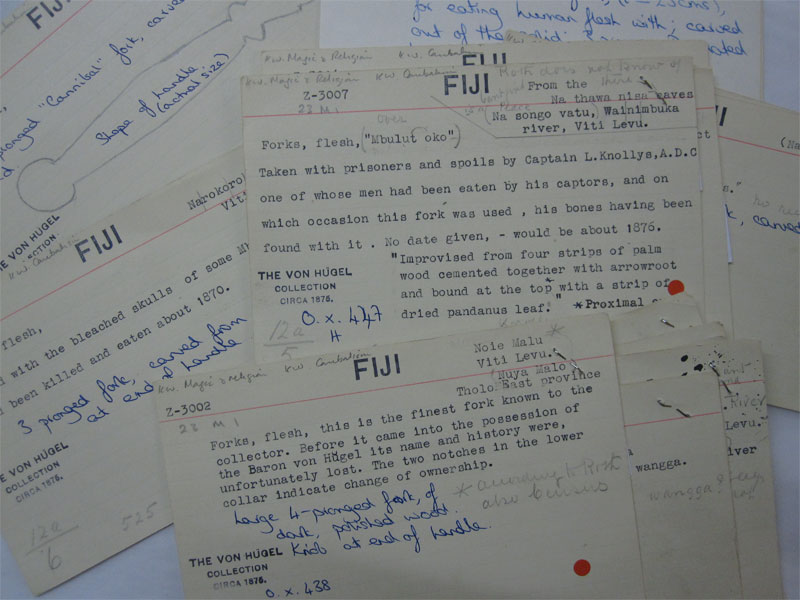 FIJI
pronged "Cannibal" fork, carved
Shape of handle
(actual size)
THE VON HÜGEL
COLLECTION
CIRCA 1875.
for eating human flesh with; carved
out of the
FIJI
K.W. Magic & Religion K.W. Cannibalism
Z-3007
23 M 1
FIJI
Roth does not know of
these
From the
Na thawa nisa caves
Na songo vatu, Wainimbuka
river, Viti Levu.
Forks, flesh, ("Mbulut oko")
Taken with prisoners and spoils by Captain L.Knollys,A.D.C
one of whose men had been eaten by his captors, and on
which occasion this fork was used , his bones having been
found with it . No date given, - would be about 1876.
"Improvised from four strips of palm
wood cemented together with arrowroot
and bound at the top with a strip of
dried pandanus leaf." *Proximal
THE VON HÜGEL
COLLECTION
CIRCA 1875.
O.x. 447
H
12a
5
K.W. Cannibalism
FIJI
Narokoro
Viti
flesh,
with the bleached skulls of some
been killed and eaten about 1870.
3 pronged fork, carved from
at end of handle
THE VON HÜGEL
COLLECTION
CIRCA 1875.
12a
6
525
K.W. Magic & Religion K.W. Cannibalism
Z-3002
23 M 1
FIJI
Noie Malu *
Viti Levu.
Nuya Malo
Tholo East province
Forks, flesh, this is the finest fork known to the
collector. Before it came into the possession of
the Baron von Hügel its name and history were,
unfortunately lost. The two notches in the lower
collar indicate change of ownership.
* according to Roth
also
Large 4-pronged fork, of
dark, polished wood.
Knob at end of handle.
THE VON HÜGEL
COLLECTION
CIRCA 1875.
O.x. 438
carved
River
Levu.
river
wangga.
wangga?